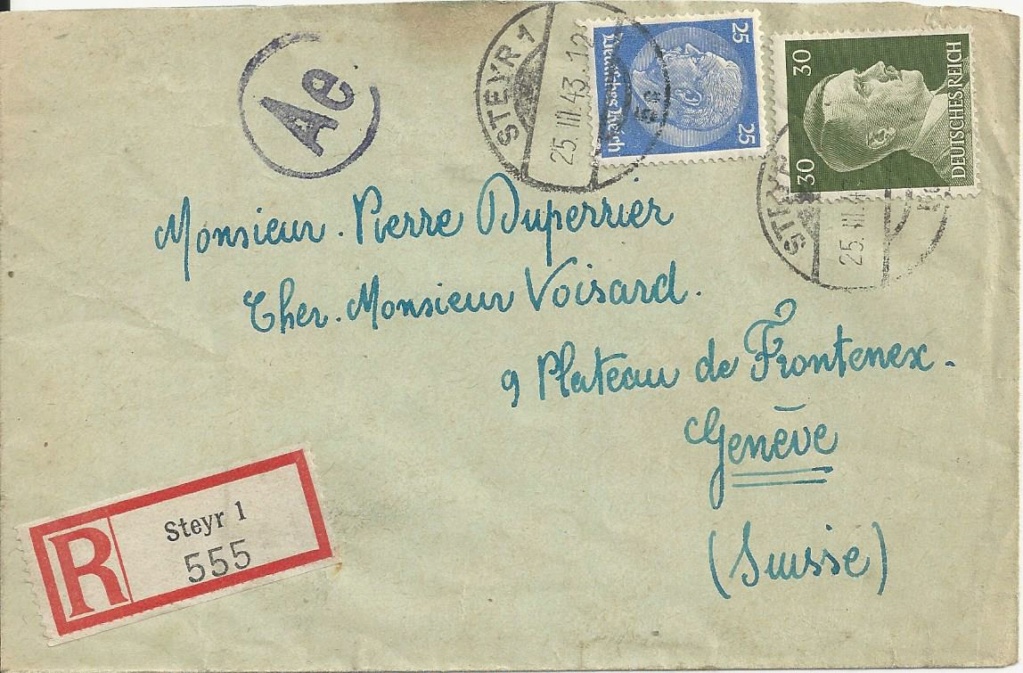 Ae
STEYR 1
25.III.43.12
25
Deutsches Reich
25
30
DEUTSCHES REICH
30
25.III.43
Monsieur. Pierre Duperrier
Cher. Monsieur Voisard.
9 Plateau de Frontenex.
Genève
(Suisse)
R
Steyr 1
555